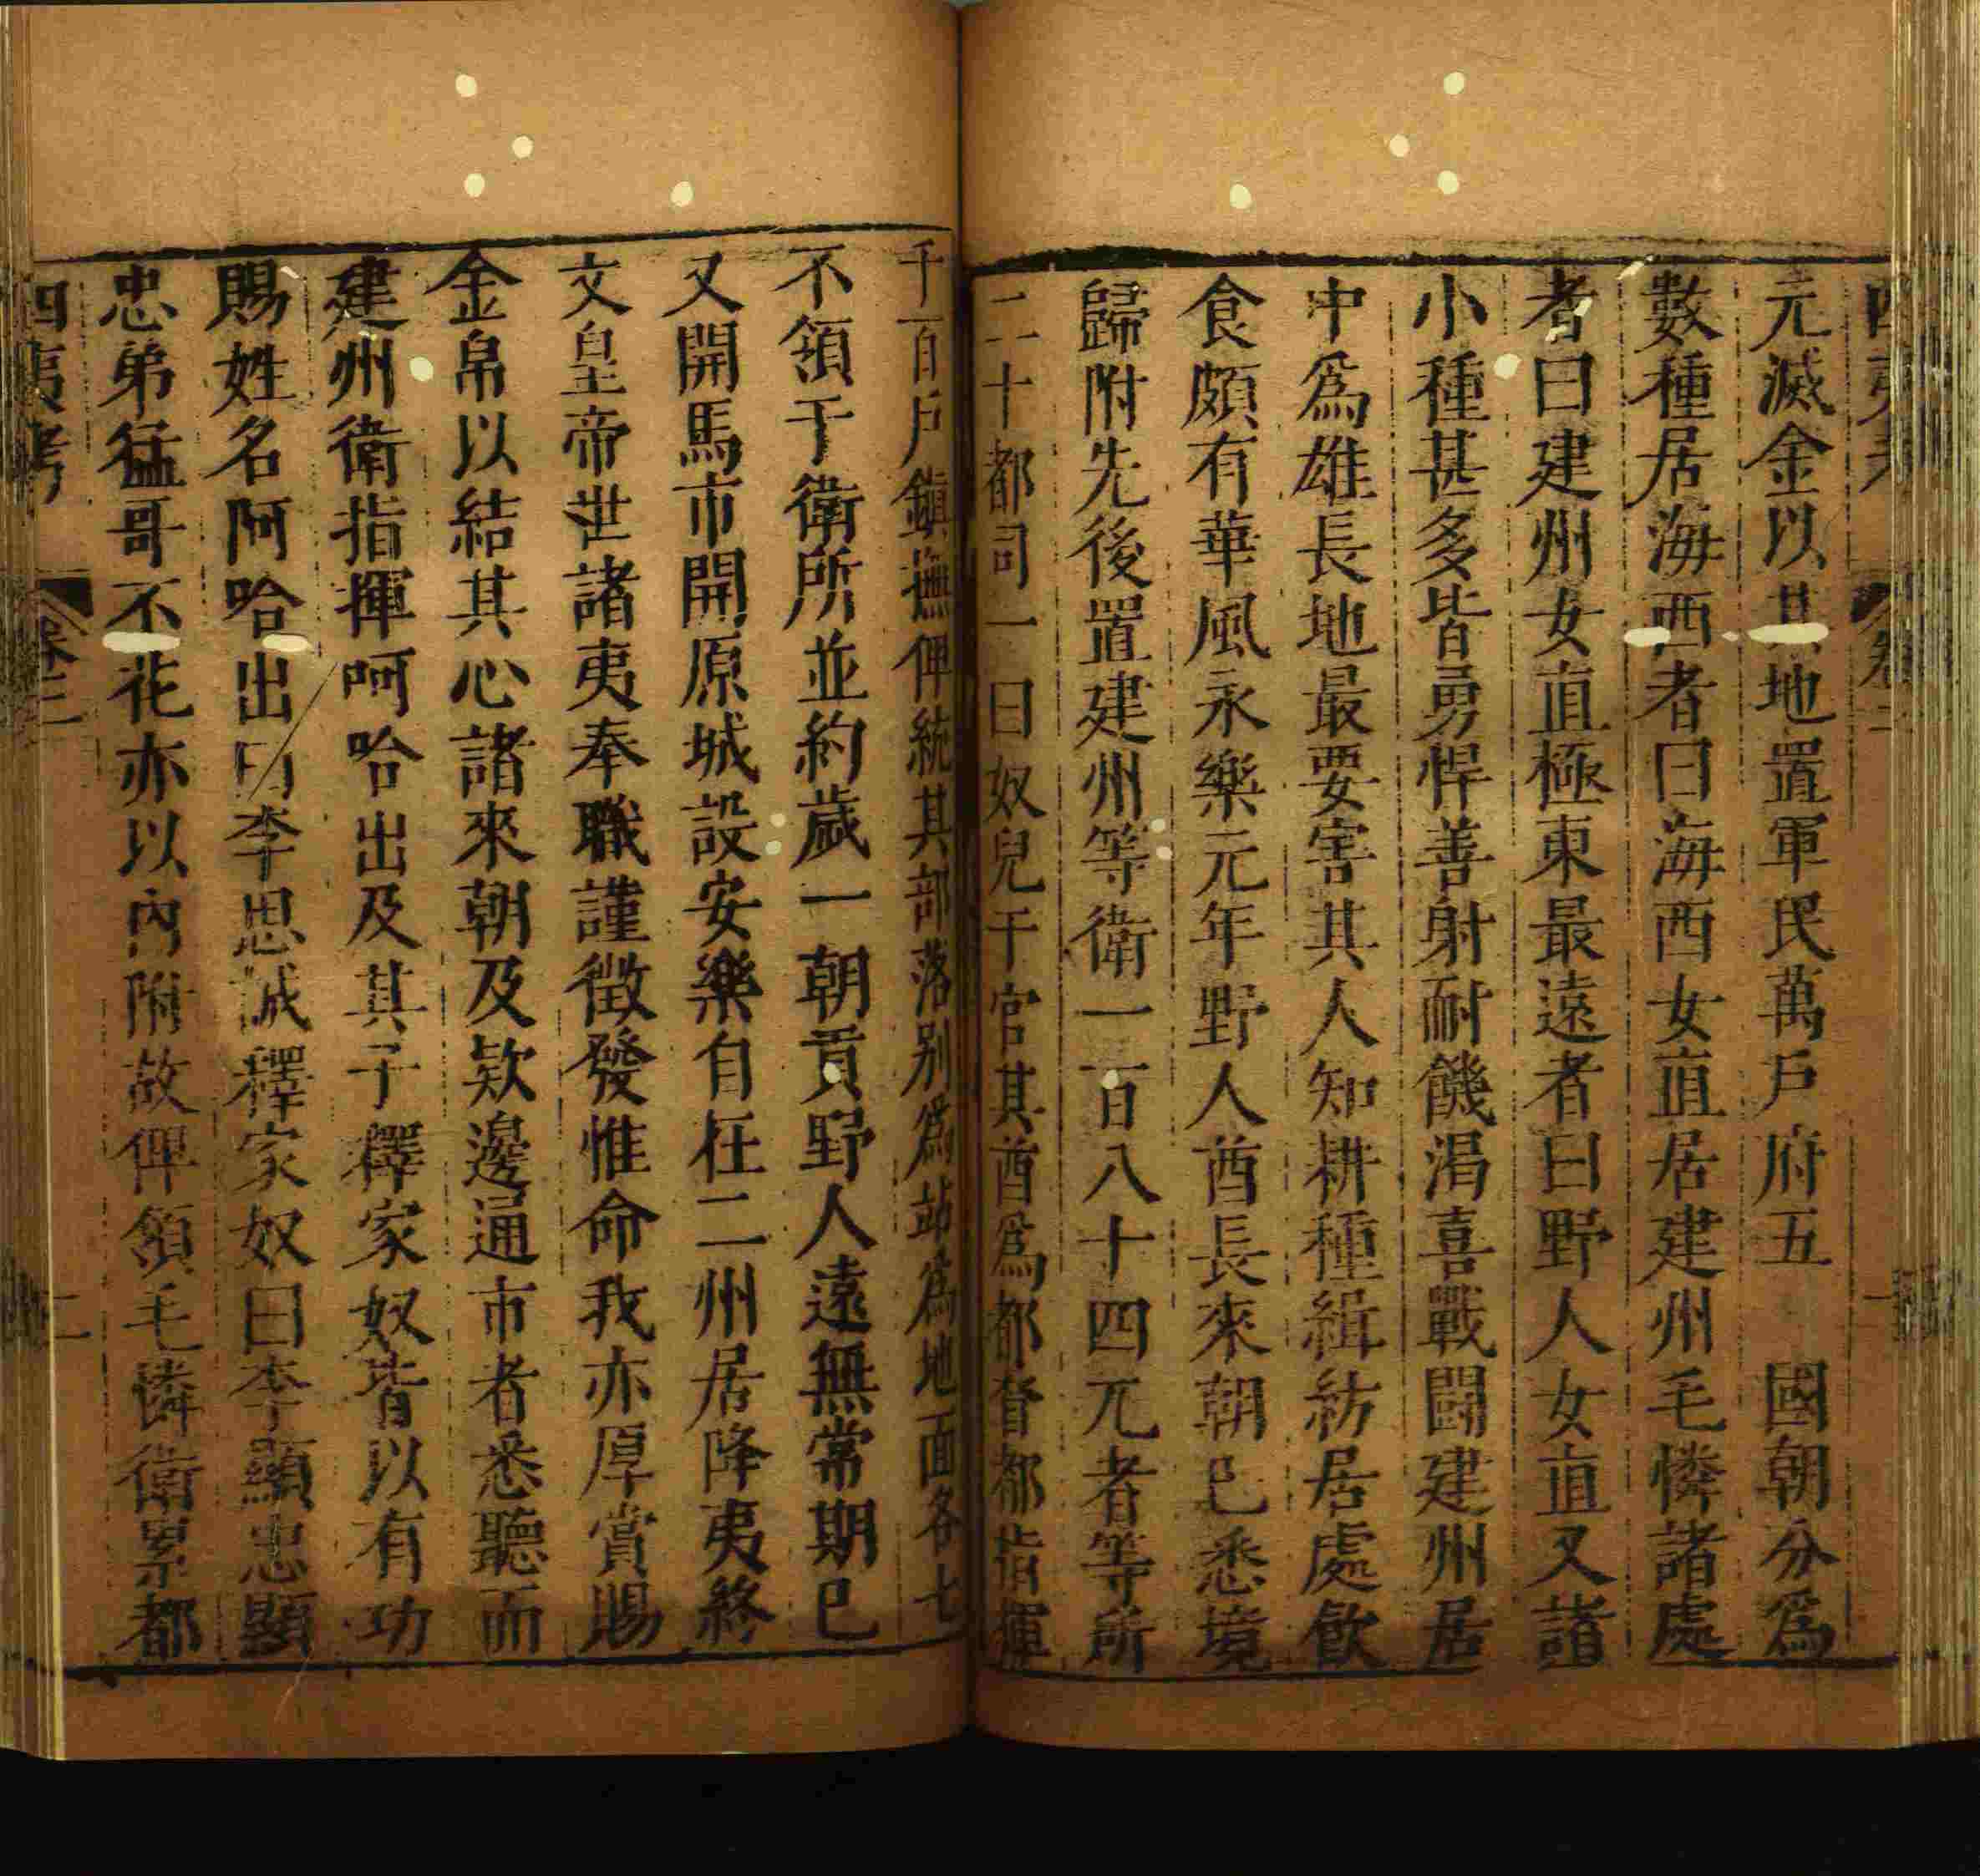 元滅金以其地置軍民萬戶府五　國朝分爲
數種居海西者曰海西女直居建州毛憐諸處
者曰建州女直極東最遠者曰野人女直又諸
小種甚多皆勇悍善射耐饑渴喜戰闘建州居
中爲雄長地最要害其人知耕種緝紡居處飲
食頗有華風永樂元年野人酋長來朝已悉境
歸附先後置建州等衛一百八十四兀者等所
二十都司一曰奴兒干官其酋爲都督都指揮
千百戶鎮撫俾統其部落别爲站爲地面各七
不領于衛所並約歲一朝貢野人遠無常期已
又開馬市開原城設安樂自在二州居降夷終
文皇帝世諸夷奉職謹徵發惟命我亦厚賞賜
金帛以結其心諸來朝及欵邊通市者悉聽而
建州衛指揮阿哈出及其子釋家奴皆以有功
賜姓名阿哈出曰李思誠釋家奴曰李顯忠顯
忠弟猛哥不花亦以內附故俾領毛憐衛累都
四夷考　卷二　二